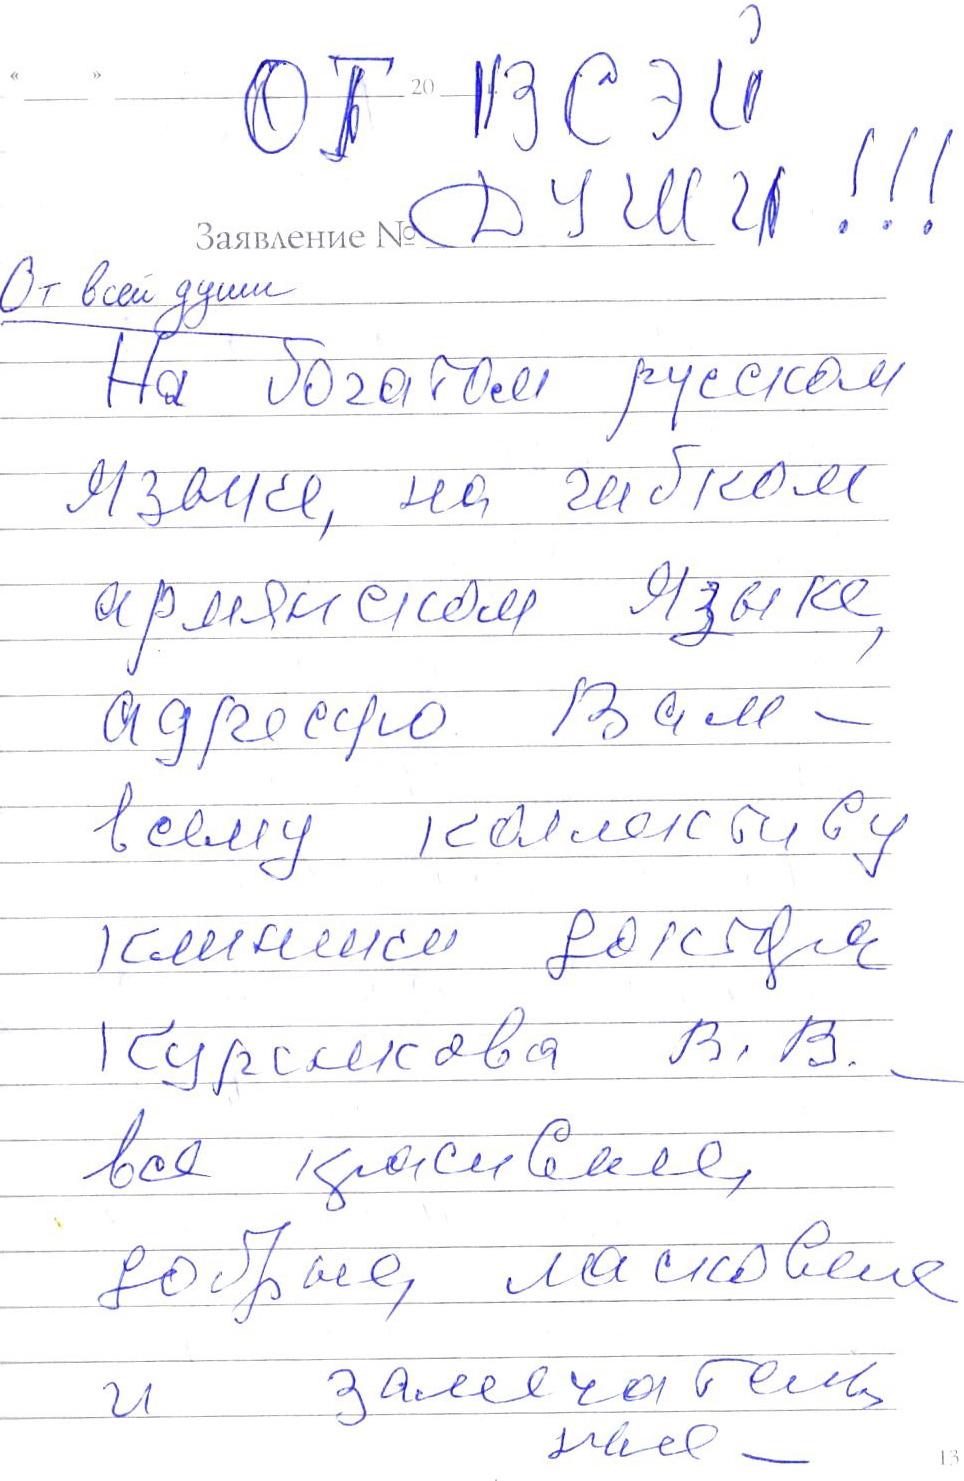 « » 20
ОТ ВСЭЙ
ДУШИ!!!
Заявление №
От всей души
На богатом русском
языке, на гибком
армянском языке,
адресую Вам –
всему коллективу
клиники доктора
Курсикова В. В. –
все красивые,
добрые, ласковые
и замечатель
ные –
13